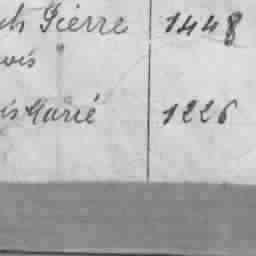 ph Pierre 1448
ouis
is Marie 1226